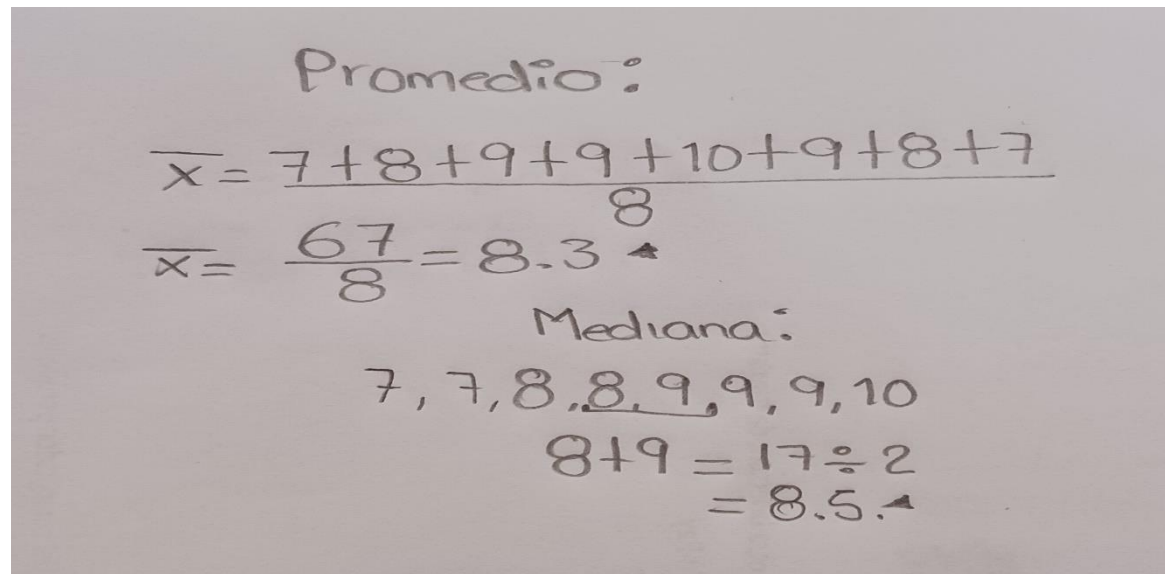 Promedio:
x̄ = 7+8+9+9+10+9+8+7
8
x̄ = 67/8 = 8.3
Mediana:
7, 7, 8, 8, 9, 9, 9, 10
8+9 = 17÷2
= 8.5.